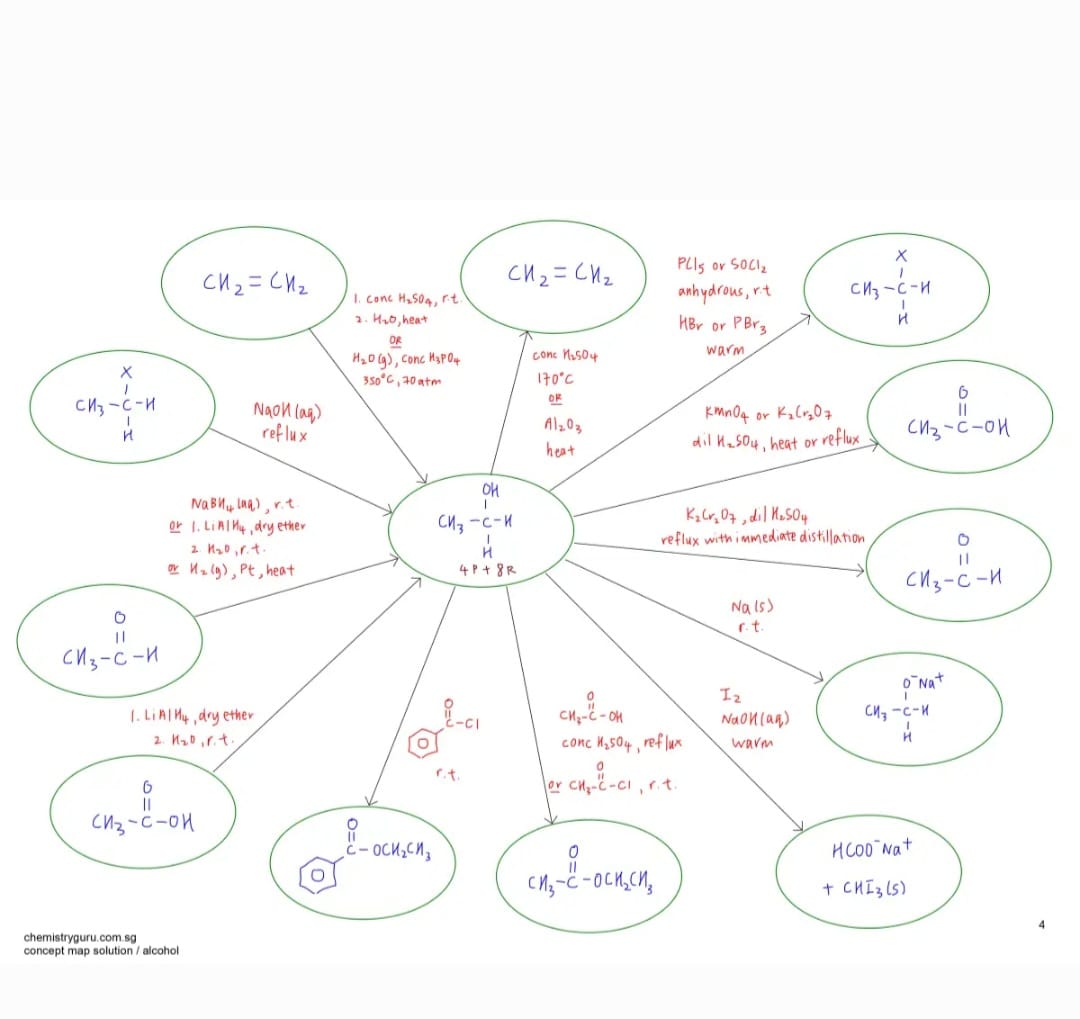 CH₂=CH₂
1. conc H₂SO₄, r.t.
2. H₂O, heat
OR
H₂O(g), conc H₃PO₄
350°C, 70atm
CH₂=CH₂
conc H₂SO4
170°C
OR
Al₂O₃
heat
PCl₅ or SOCl₂
anhydrous, r.t
HBr or PBr₃
warm
X
CH₃-C-H
H
X
CH₃-C-H
H
NaOH(aq)
reflux
KMnO₄ or K₂Cr₂O₇
dil H₂SO₄, heat or reflux
O
CH₃-C-OH
OH
CH₃-C-H
H
4P+8R
NaBH₄(aq), r.t.
or 1. LiAlH₄, dry ether
2. H₂O, r.t.
or H₂(g), Pt, heat
K₂Cr₂O₇, dil H₂SO₄
reflux with immediate distillation
O
CH₃-C-H
O
CH₃-C-H
Na(s)
r.t.
O⁻Na⁺
CH₃-C-H
H
1. LiAlH₄, dry ether
2. H₂O, r.t.
O
CH₃-C-OH
O
C-Cl
r.t.
O
CH₃-C-OH
conc H₂SO4, reflux
O
or CH₃-C-Cl, r.t.
I₂
NaOH(aq)
warm
O
C-OCH₂CH₃
O
CH₃-C-OCH₂CH₃
HCOO⁻Na⁺
+ CHI₃(s)
4
chemistryguru.com.sg
concept map solution / alcohol